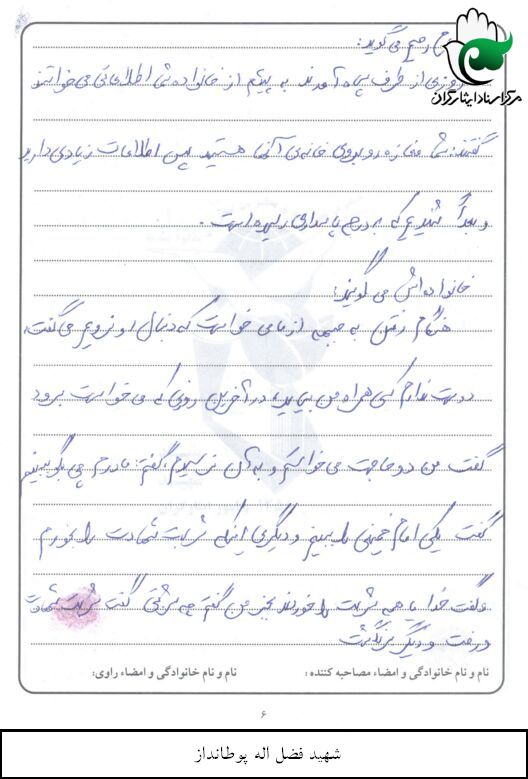 مرکز اسناد ایثارگران
رحیم می گوید:
روزی از طرف سپاه آمدند به پیشم از خانواده شما اطلاعاتی می خواستند
گفتند: شما مغازه روبروی خانه ی آنها هستید پس اطلاعات زیادی دارید
و بعداً شنیدیم که به درجه پاسداری رسیده است.
خانواده اش می گویند:
هنگام رفتن به جبهه از ما می خواست که دنبال او نرویم می گفت:
دوست ندارم کسی همراه من بیاید، در آخرین روزی که می خواست برود
گفت من دو حاجت می خواستم و به آن نرسیدم، گفتم: مادرم چی بگو ببینم
گفت یکی امام خمینی را ببینم و دیگری اینکه شربت شهادت را بخورم
و گفت خدایا همه شربت را خوردند بجز من گفتم چه شربتی گفت شربت شهادت
و رفت و دیگر برنگشت
نام و نام خانوادگی و امضاء مصاحبه کننده : نام و نام خانوادگی و امضاء راوی:
۶
شهید فضل اله پوطانداز